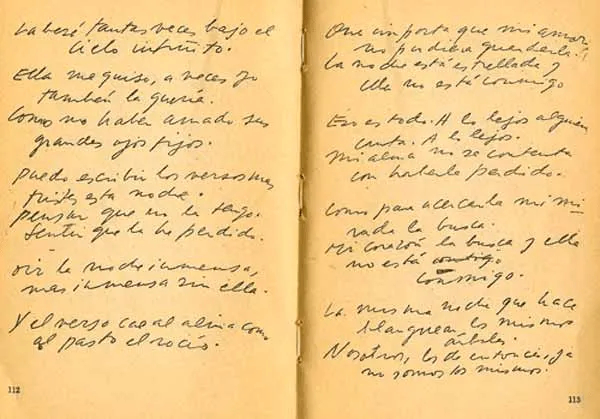 La besé tantas veces bajo el
cielo infinito.
Ella me quiso, a veces yo
también la quería.
Cómo no haber amado sus
grandes ojos fijos.
Puedo escribir los versos mas
tristes esta noche.
Pensar que no la tengo.
Sentir que la he perdido.
Oír la noche inmensa,
mas inmensa sin ella.
Y el verso cae al alma como
al pasto el rocío.
112
Que importa que mi amor
no pudiera guardarla.
La noche está estrellada y
ella no está conmigo
Eso es todo. A lo lejos alguien
canta. A lo lejos.
Mi alma no se contenta
con haberla perdido.
Como para acercarla mi mi-
rada la busca.
Mi corazón la busca y ella
no está contigo
conmigo.
La misma noche que hace
blanquear los mismos
árboles.
Nosotros, los de entonces, ya
no somos los mismos.
113